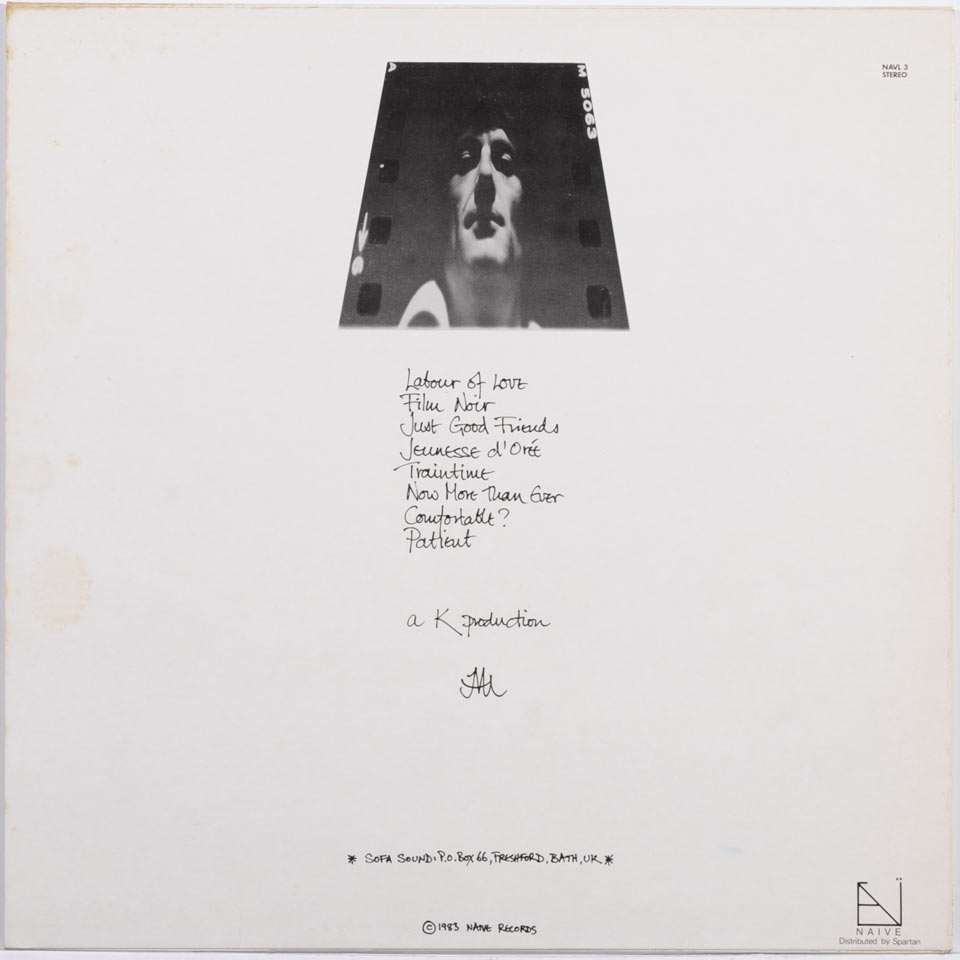 NAVL 3
STEREO
A
M 5063
Labour of Love
Film Noir
Just Good Friends
Jeunesse d'Orée
Traintime
Now More Than Ever
Comfortable?
Patient
a K production
* SOFA SOUND: P.O. BOX 66, FRESHFORD, BATH, UK *
© 1983 NAIVE RECORDS
NAIVE
Distributed by Spartan